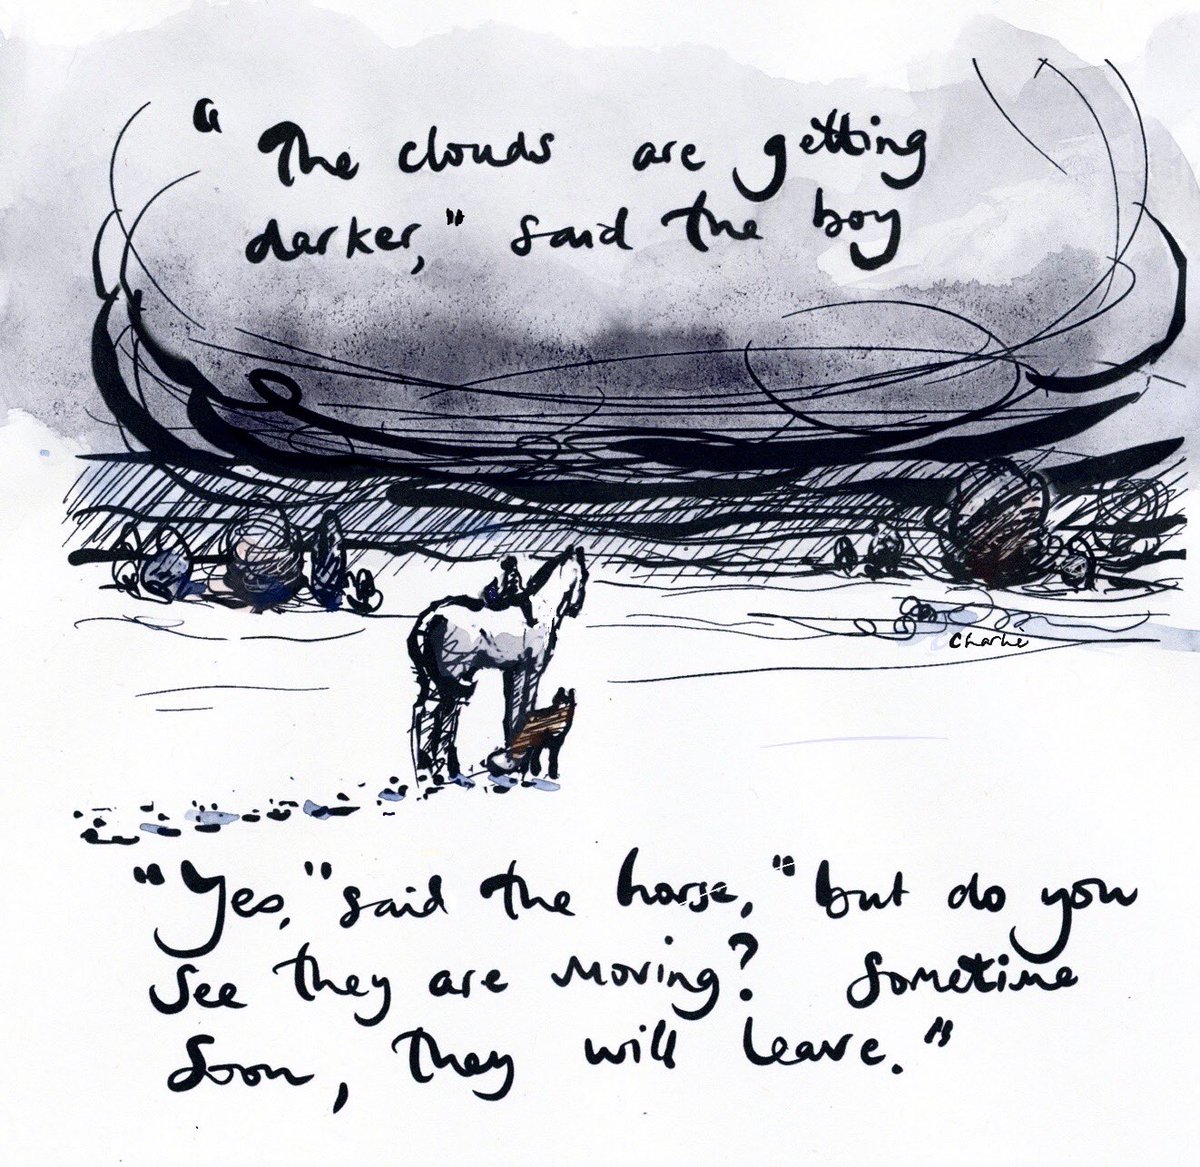 "The clouds are getting
darker," said the boy
Charlie
"Yes," said the horse, "but do you
see they are moving? Sometime
soon, they will leave."